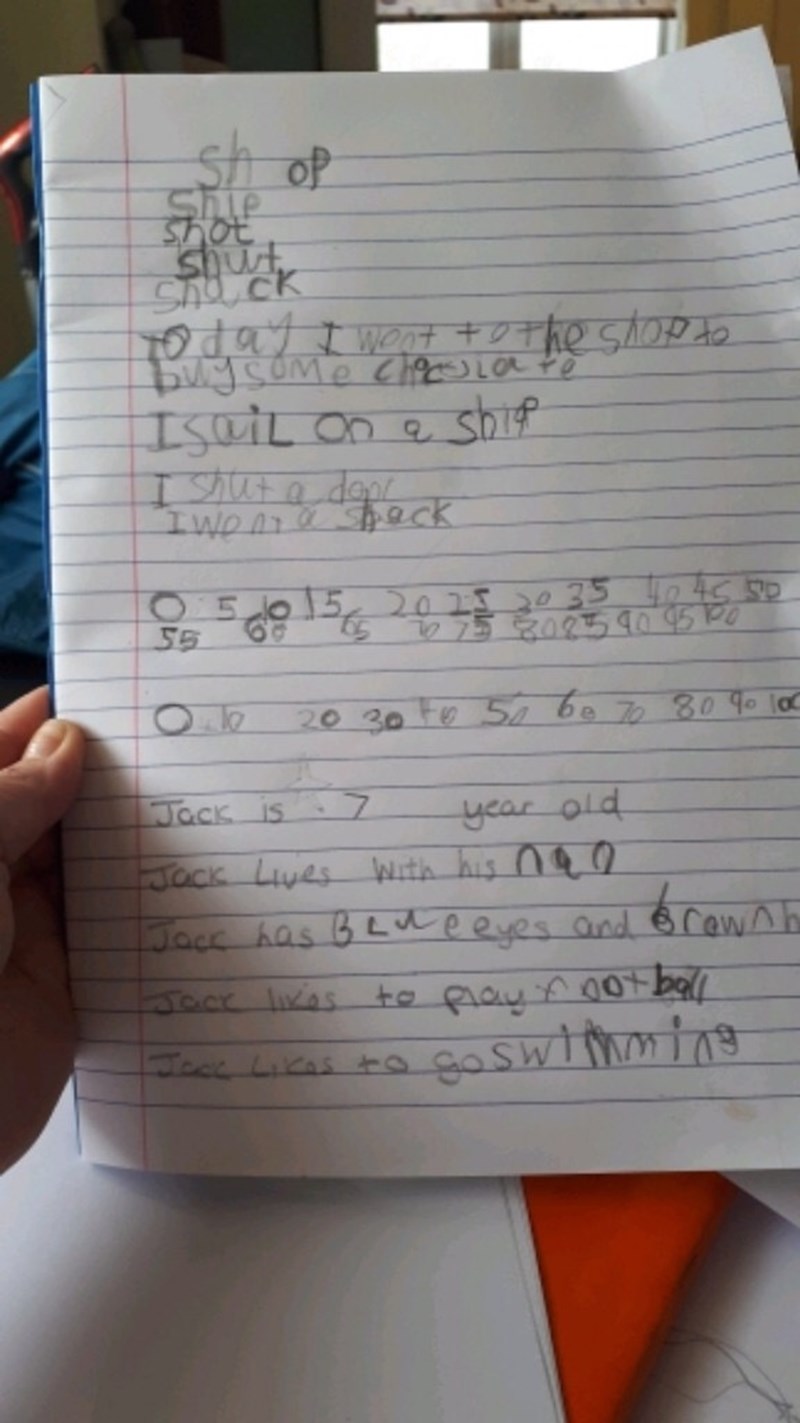 sh op
ship
shot
shut
shack
Today I went to the shop to
buy some
I saiL on a ship
I shut a door
I went a shack
0 5 10 15 20 25 30 35 40 45 50
55 60 65 70 75 80 85 90 95 100
0 10 20 30 40 50 60 70 80 90 100
Jack is 7 year old
Jack Lives with his nan
Jack has BLUe eyes and Brown h
Jack likes to play football
Jack Likes to go swimming